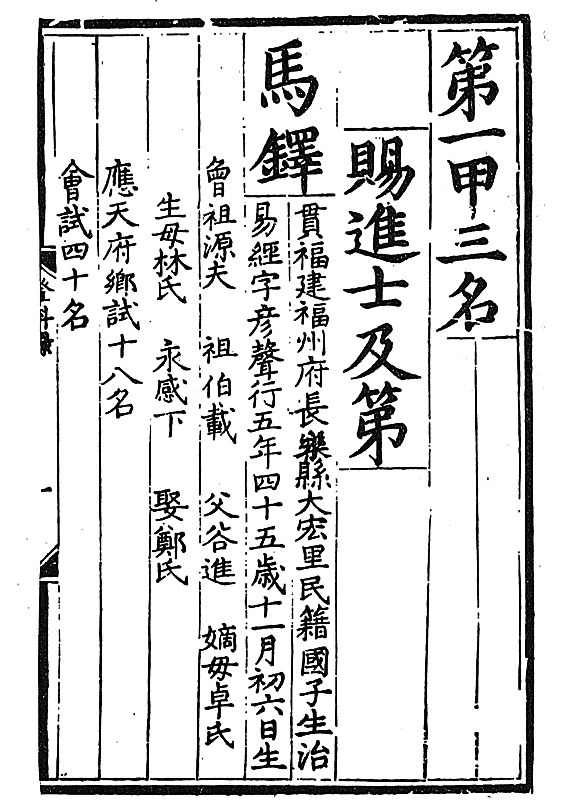 第一甲三名
賜進士及第
馬鐸
貫福建福州府長樂縣大宏里民籍國子生治
易經字彦聲行五年四十五歲十一月初六日生
曾祖源夫 祖伯載 父谷進 嫡母卓氏
生母林氏 永感下 娶鄭氏
應天府鄉試十八名
會試四十名
登科錄
一